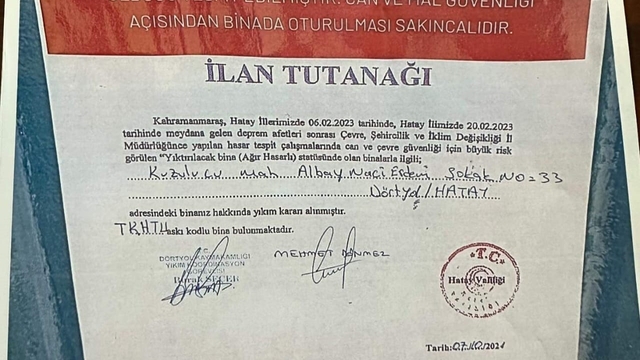 AÇISINDAN BİNADA OTURULMASI SAKINCALIDIR.
İLAN TUTANAĞI
Kahramanmaraş, Hatay İllerimizde 06.02.2023 tarihinde, Hatay İlimizde 20.02.2023
tarihinde meydana gelen deprem afetleri sonrası Çevre, Şehircilik ve İklim Değişikliği İl
Müdürlüğünce yapılan hasar tespit çalışmalarında can ve çevre güvenliği için büyük risk
görülen "Yıktırılacak bina (Ağır Hasarlı) statüsünde olan binalarla ilgili;
Kuzulucu mah Albay Naci Erdeni Sokak NO=33
Dörtyol/HATAY
adresindeki binanız hakkında yıkım kararı alınmıştır.
TKHTH askı kodlu bina bulunmaktadır.
T.C.
DÖRTYOL KAYMAKAMLIĞI
YIKIM KOORDİNASYON
Burak SEÇER
MEHMET DÖNMEZ
T.C.
Hatay Valiliği
Tarih: